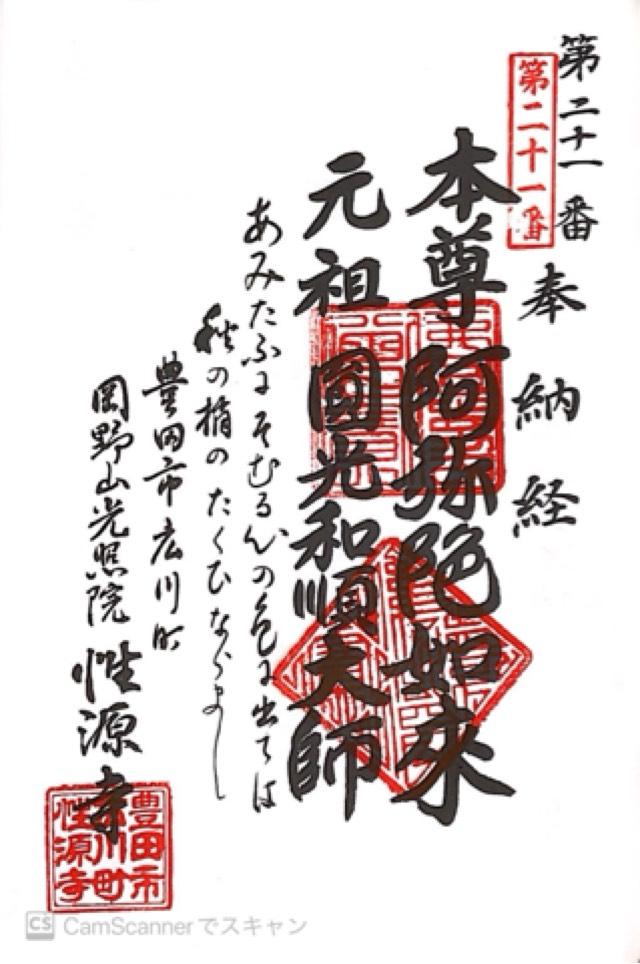 第二十一番 奉納経
第二十一番
本尊 阿弥陀如来
元祖 國光和順大師
あみたふにそむる心の色に出ては
秋の梢のたくひならまし
豊田市広川町
岡野山光照院 性源寺
豊田市
広川町
性源寺
CS CamScannerでスキャン